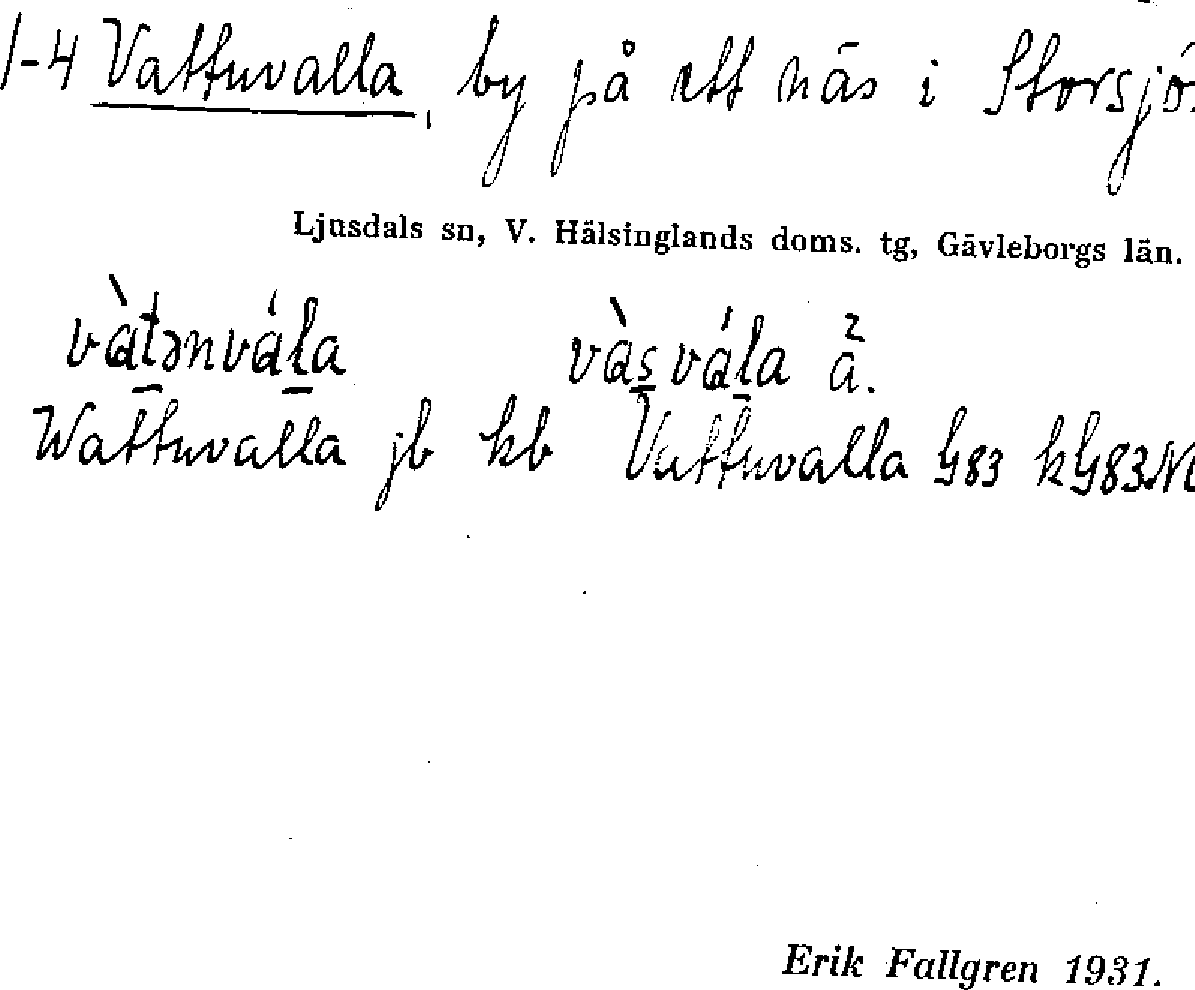 1-4 Vattuvalla, by på ett näs i Storsjö.
Ljusdals sn, V. Hälsinglands doms. tg, Gävleborgs län.
vàtənvála vàsvála ä.
Wattuvalla jb kb Vattuvalla G83 kG83
Erik Fallgren 1931.